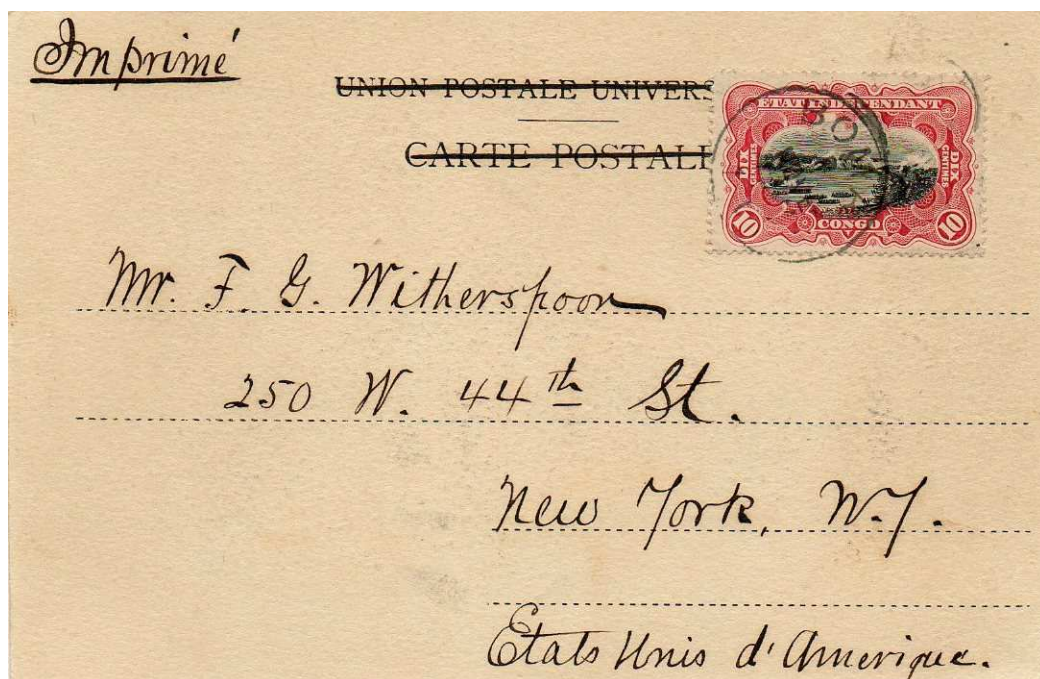 Imprimé
UNION POSTALE UNIVERS
CARTE POSTALE
ETAT INDEPENDANT
BOM
DIX CENTIMES
DIX CENTIMES
10
CONGO
10
Mr. F. G. Witherspoon
250 W. 44th St.
New York, N.Y.
Etats Unis d'Amerique.